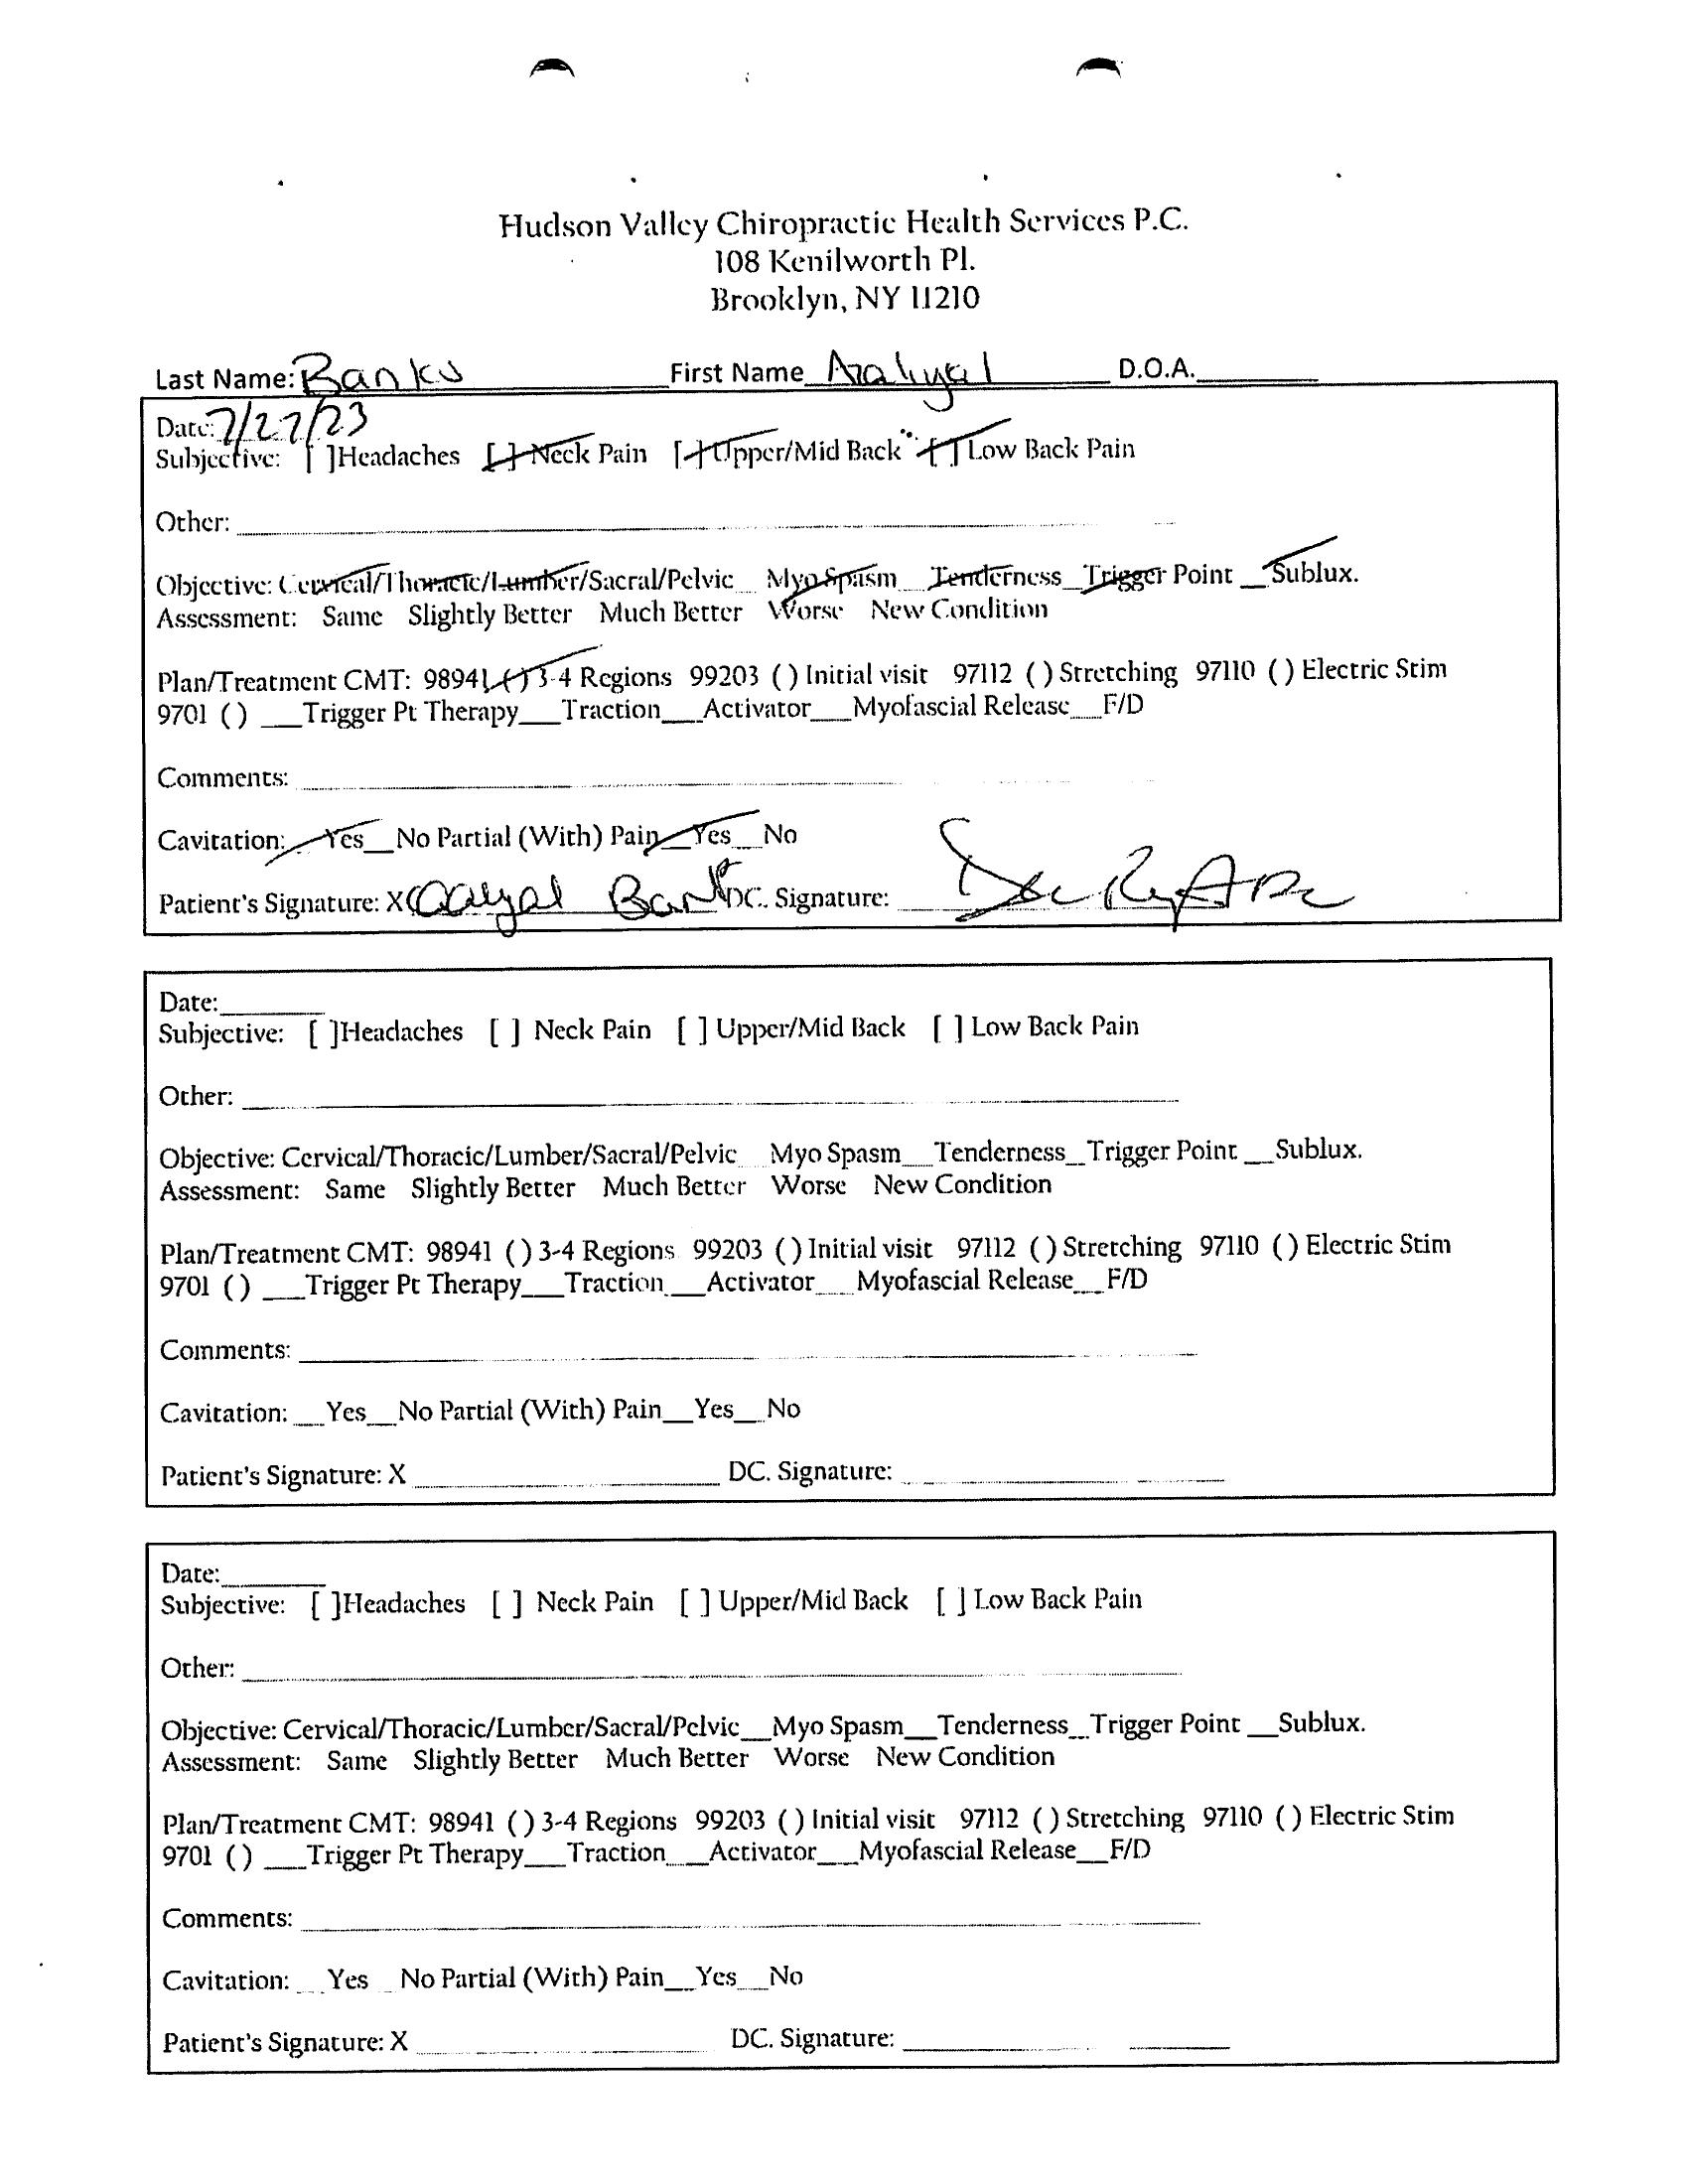 Hudson Valley Chiropractic Health Services P.C.
108 Kenilworth Pl.
Brooklyn, NY 11210
Last Name: Banks First Name D.O.A.
Date: 7/27/23
Subjective: [ ]Headaches [ ] Neck Pain [ ] Upper/Mid Back [ ] Low Back Pain
Other:
Objective: Cervical/Thoracic/Lumber/Sacral/Pelvic__Myo Spasm__Tenderness__Trigger Point __Sublux.
Assessment: Same Slightly Better Much Better Worse New Condition
Plan/Treatment CMT: 98941 ( ) 3-4 Regions 99203 ( ) Initial visit 97112 ( ) Stretching 97110 ( ) Electric Stim
9701 ( ) ___Trigger Pt Therapy___Traction___Activator___Myofascial Release___F/D
Comments:
Cavitation: __Yes__No Partial (With) Pain__Yes__No
Patient's Signature: X Banks DC. Signature:
Date:
Subjective: [ ]Headaches [ ] Neck Pain [ ] Upper/Mid Back [ ] Low Back Pain
Other:
Objective: Cervical/Thoracic/Lumber/Sacral/Pelvic__Myo Spasm__Tenderness__Trigger Point __Sublux.
Assessment: Same Slightly Better Much Better Worse New Condition
Plan/Treatment CMT: 98941 ( ) 3-4 Regions 99203 ( ) Initial visit 97112 ( ) Stretching 97110 ( ) Electric Stim
9701 ( ) ___Trigger Pt Therapy___Traction___Activator___Myofascial Release___F/D
Comments:
Cavitation: __Yes__No Partial (With) Pain__Yes__No
Patient's Signature: X DC. Signature:
Date:
Subjective: [ ]Headaches [ ] Neck Pain [ ] Upper/Mid Back [ ] Low Back Pain
Other:
Objective: Cervical/Thoracic/Lumber/Sacral/Pelvic__Myo Spasm__Tenderness__Trigger Point __Sublux.
Assessment: Same Slightly Better Much Better Worse New Condition
Plan/Treatment CMT: 98941 ( ) 3-4 Regions 99203 ( ) Initial visit 97112 ( ) Stretching 97110 ( ) Electric Stim
9701 ( ) ___Trigger Pt Therapy___Traction___Activator___Myofascial Release___F/D
Comments:
Cavitation: __Yes__No Partial (With) Pain__Yes__No
Patient's Signature: X DC. Signature: